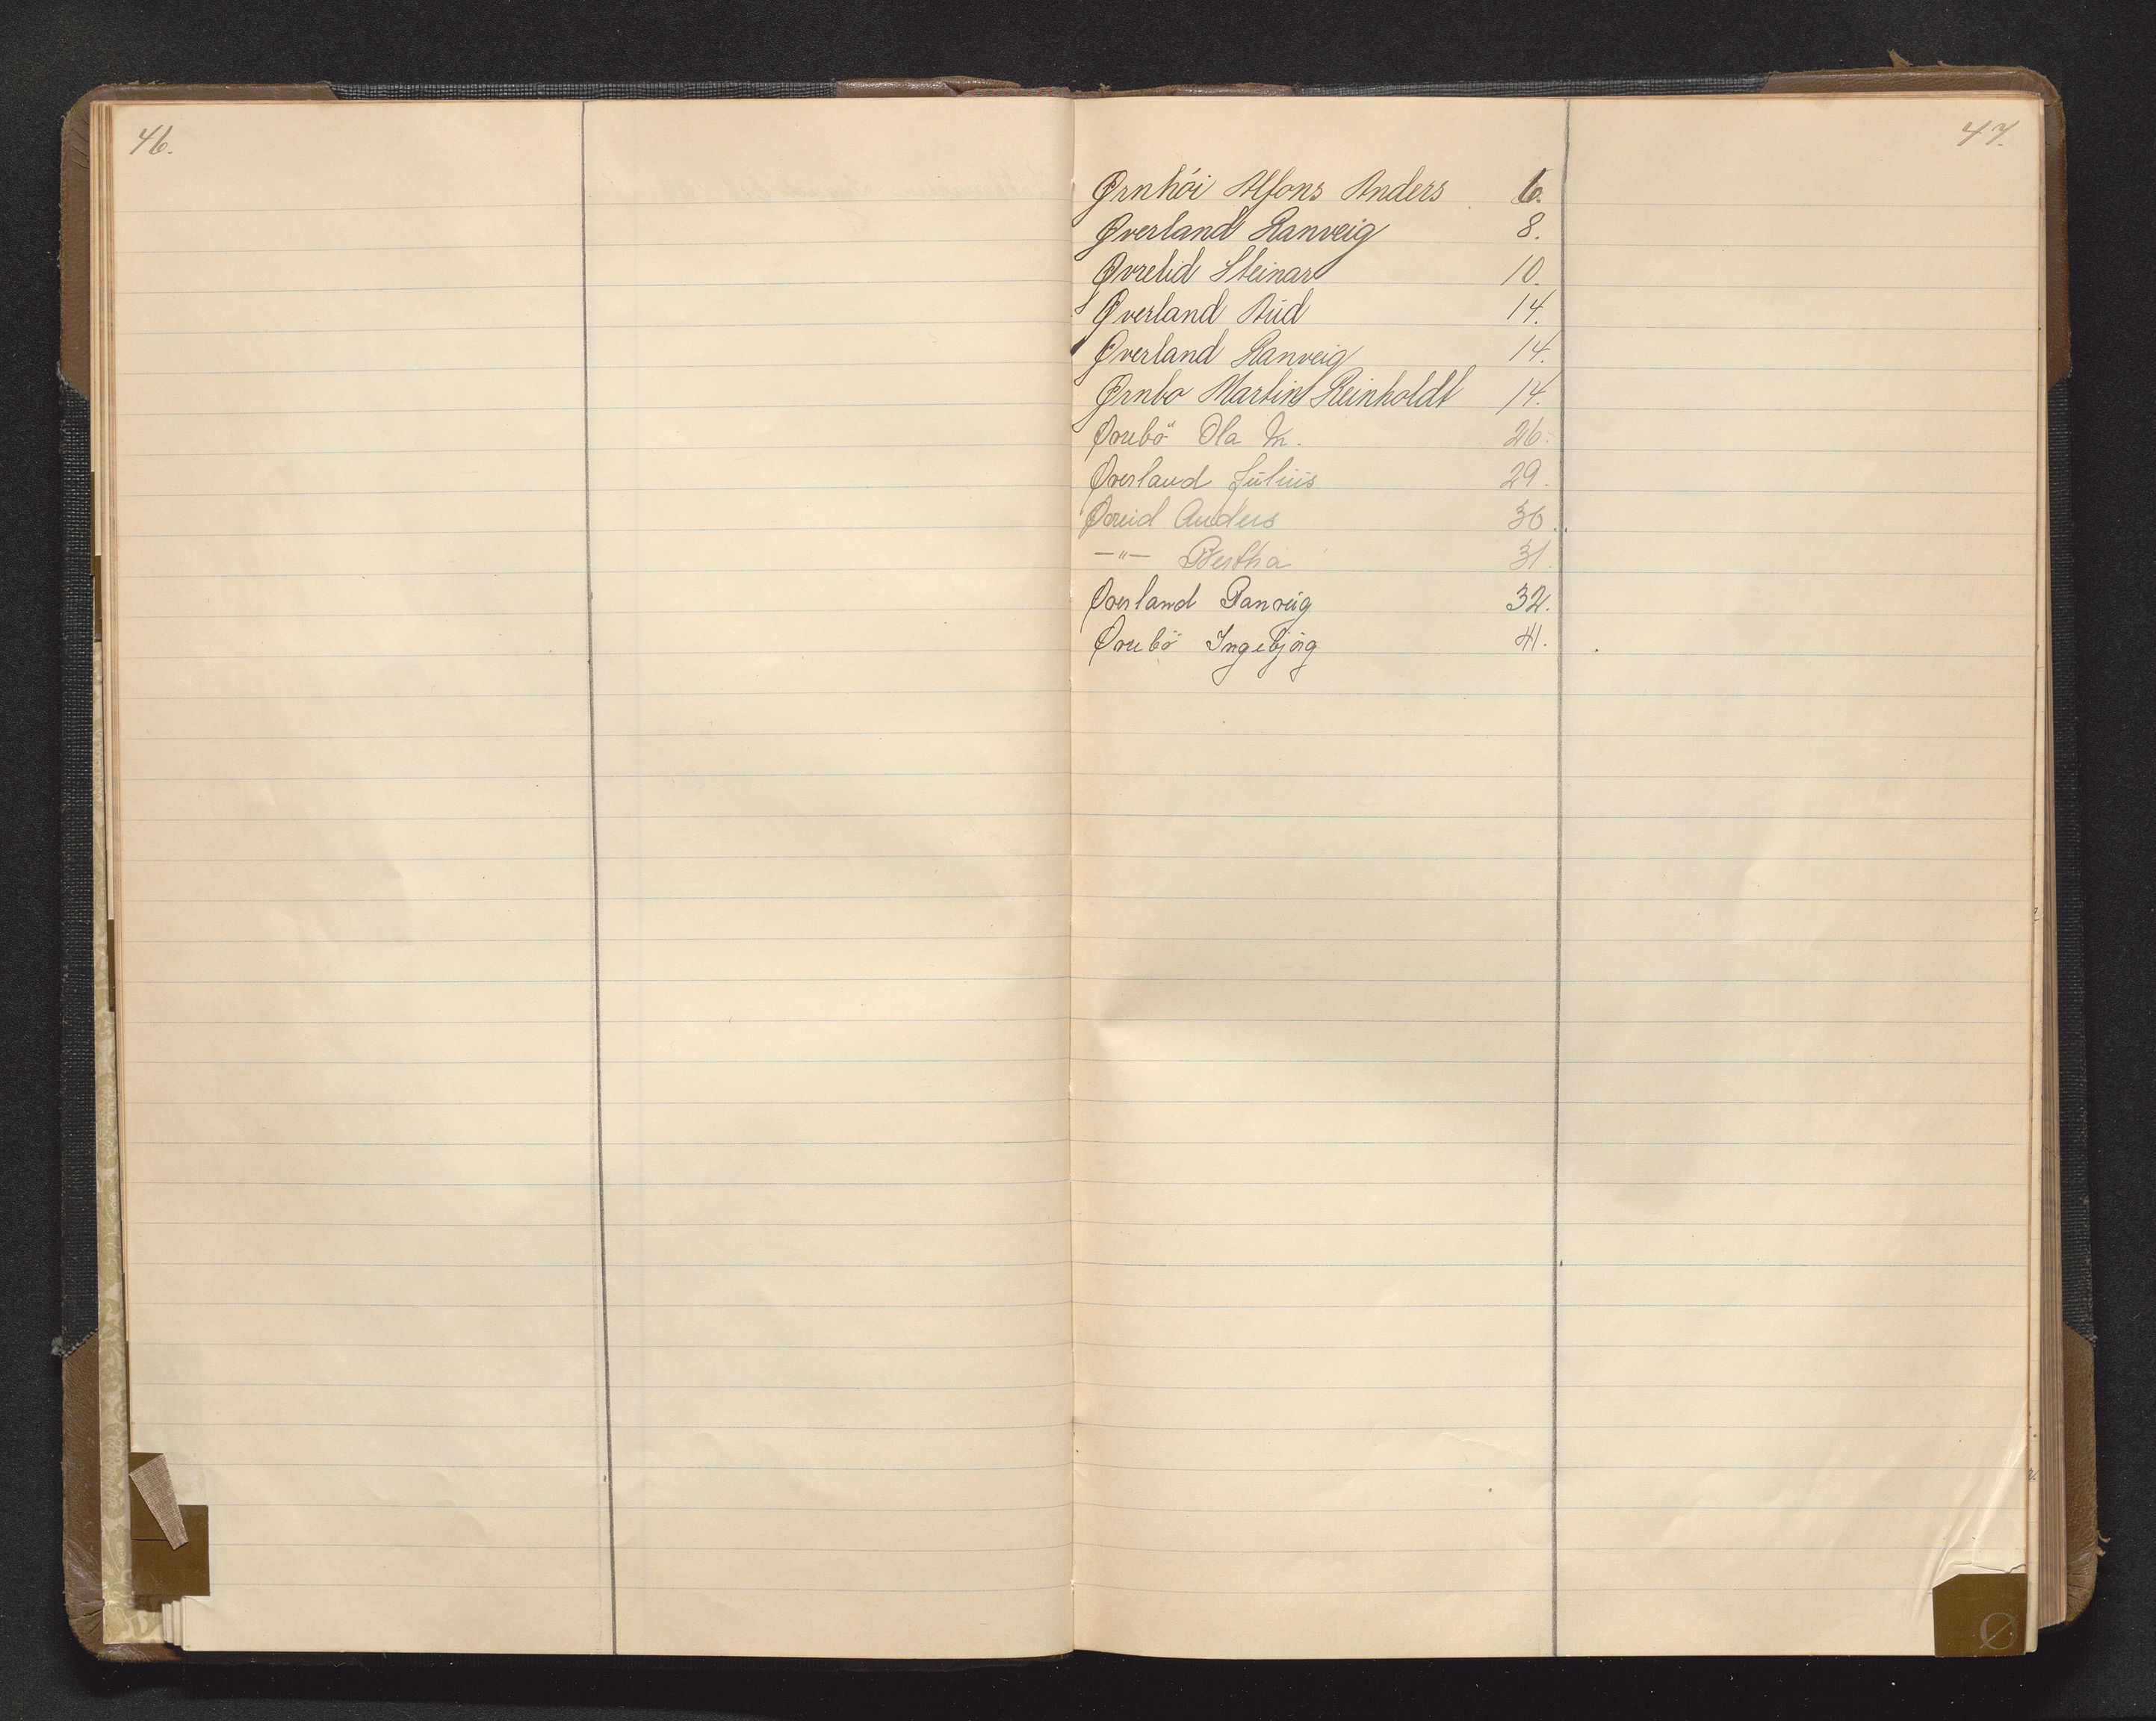 46.
47.
Ørnhöi Alfons Anders 6.
Øverland Ranveig 8.
Øvrelid Steinar 10.
Øverland Aud 14.
Øverland Ranveig 14.
Ørnbo Martin Reinholdt 14.
Ørebö Ola M. 26.
Øverland Julius 29.
Øreid Anders 30.
—"— Bertha 31.
Øverland Ranveig 32.
Ørebö Ingebjörg 41.
Ø